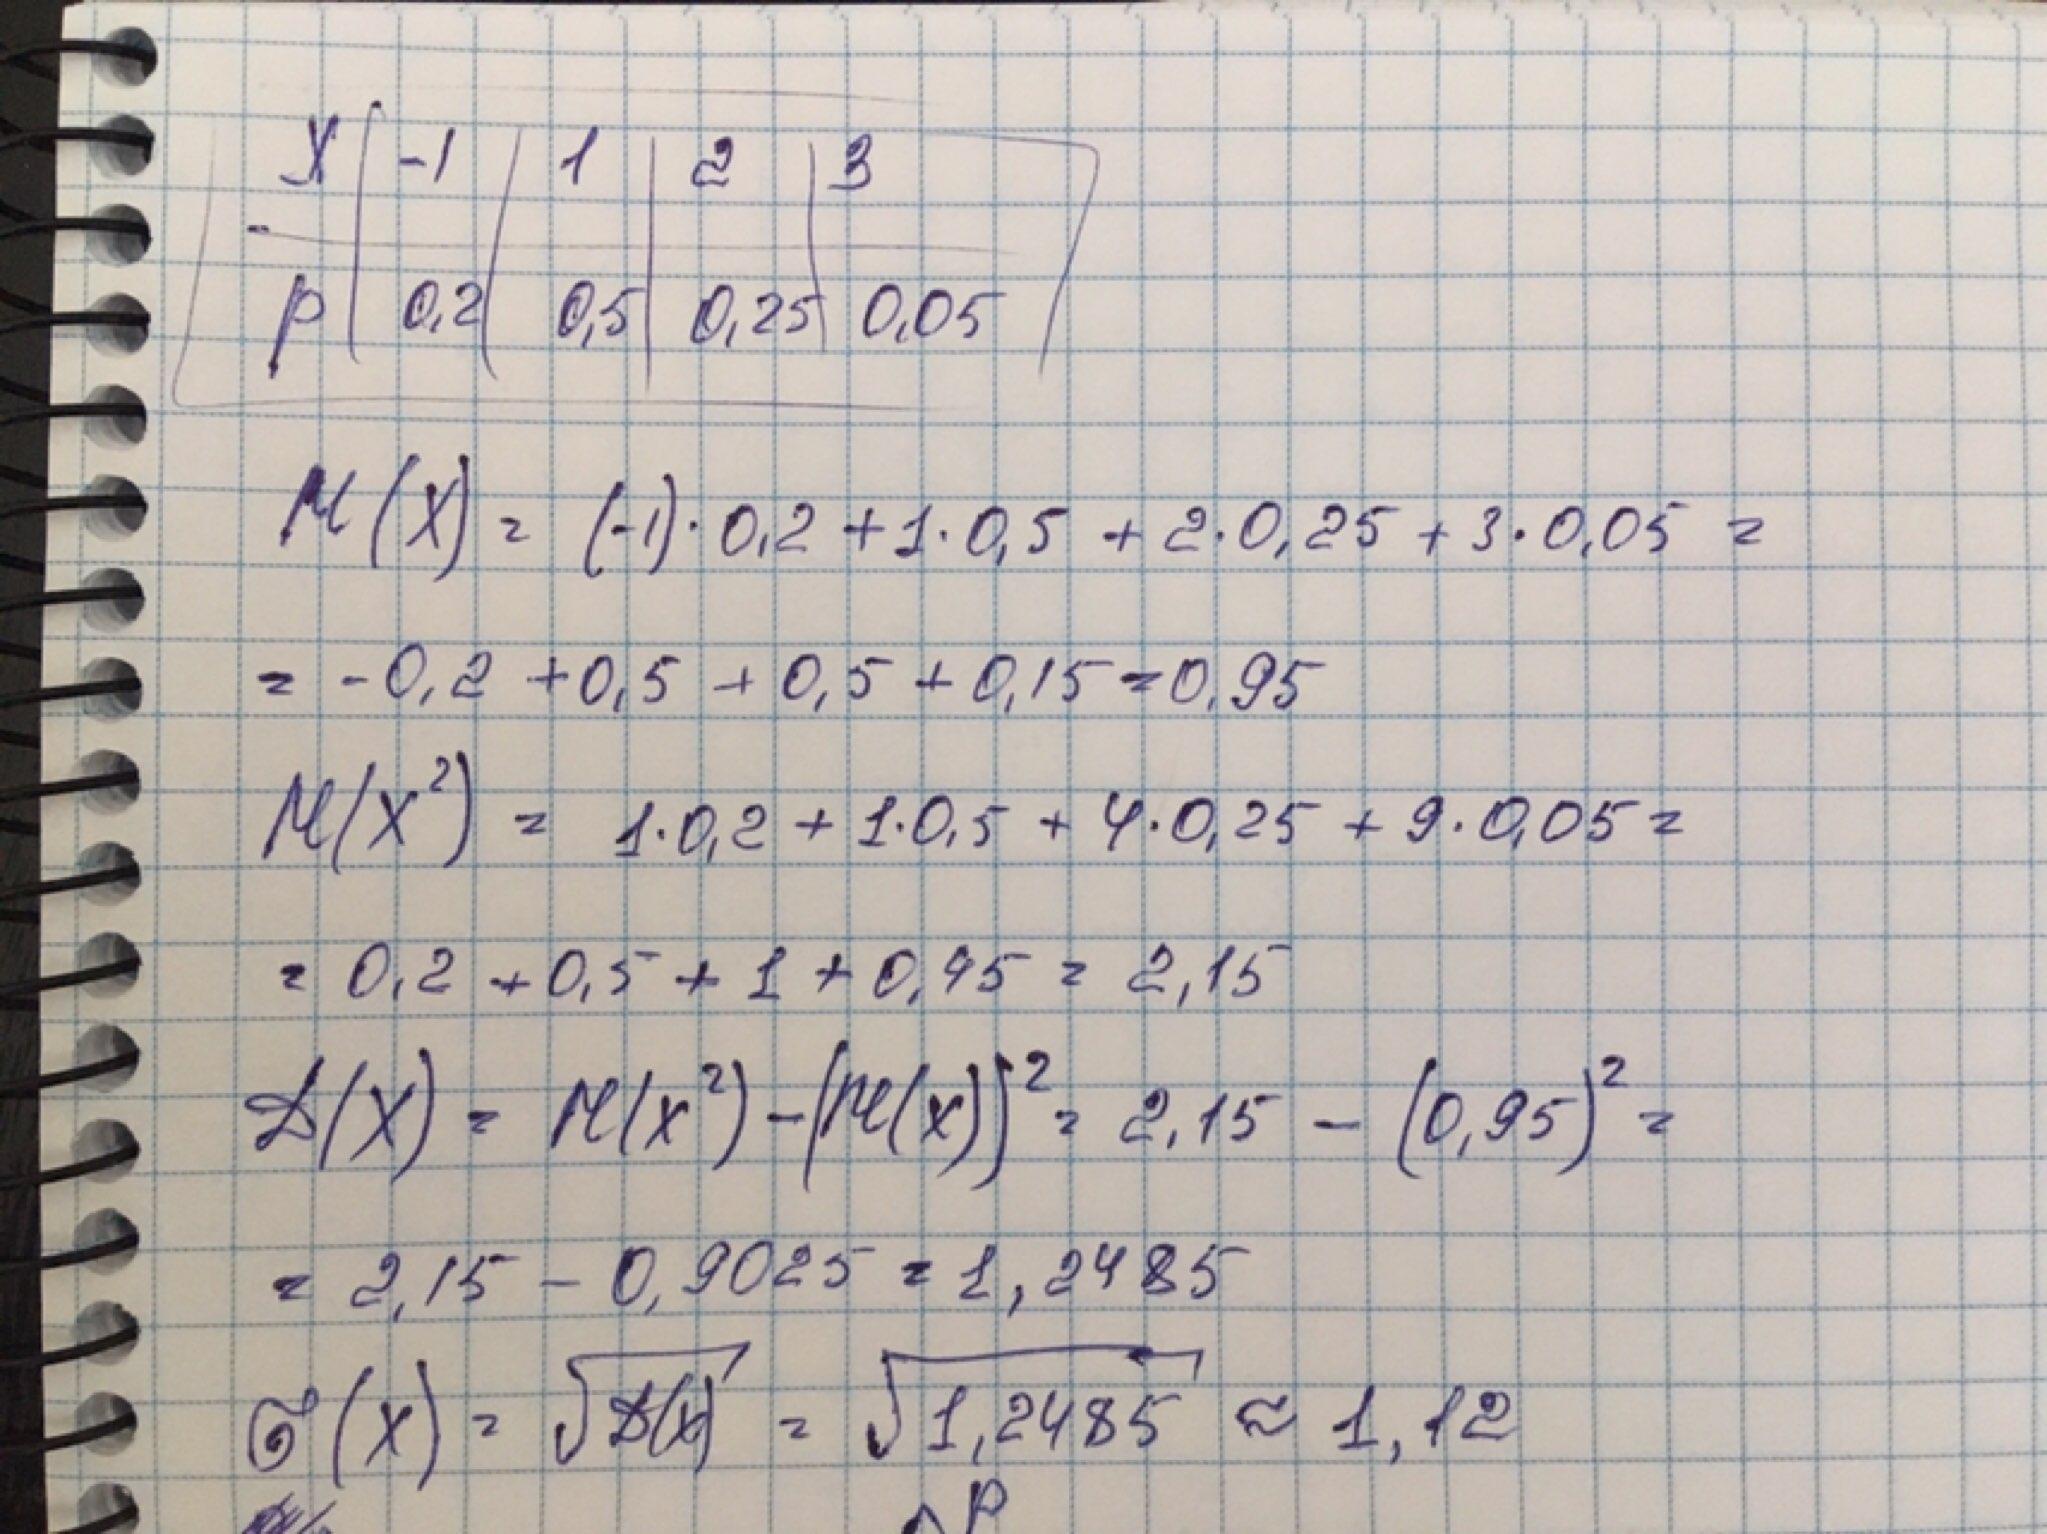 X | -1 | 1 | 2 | 3
P | 0,2 | 0,5 | 0,25 | 0,05
M(X) = (-1)·0,2 + 1·0,5 + 2·0,25 + 3·0,05 =
= -0,2 + 0,5 + 0,5 + 0,15 = 0,95
M(X²) = 1·0,2 + 1·0,5 + 4·0,25 + 9·0,05 =
= 0,2 + 0,5 + 1 + 0,45 = 2,15
D(X) = M(x²) - (M(x))² = 2,15 - (0,95)² =
= 2,15 - 0,9025 = 1,2485
σ(X) = √D(x) = √1,2485 ≈ 1,12
P